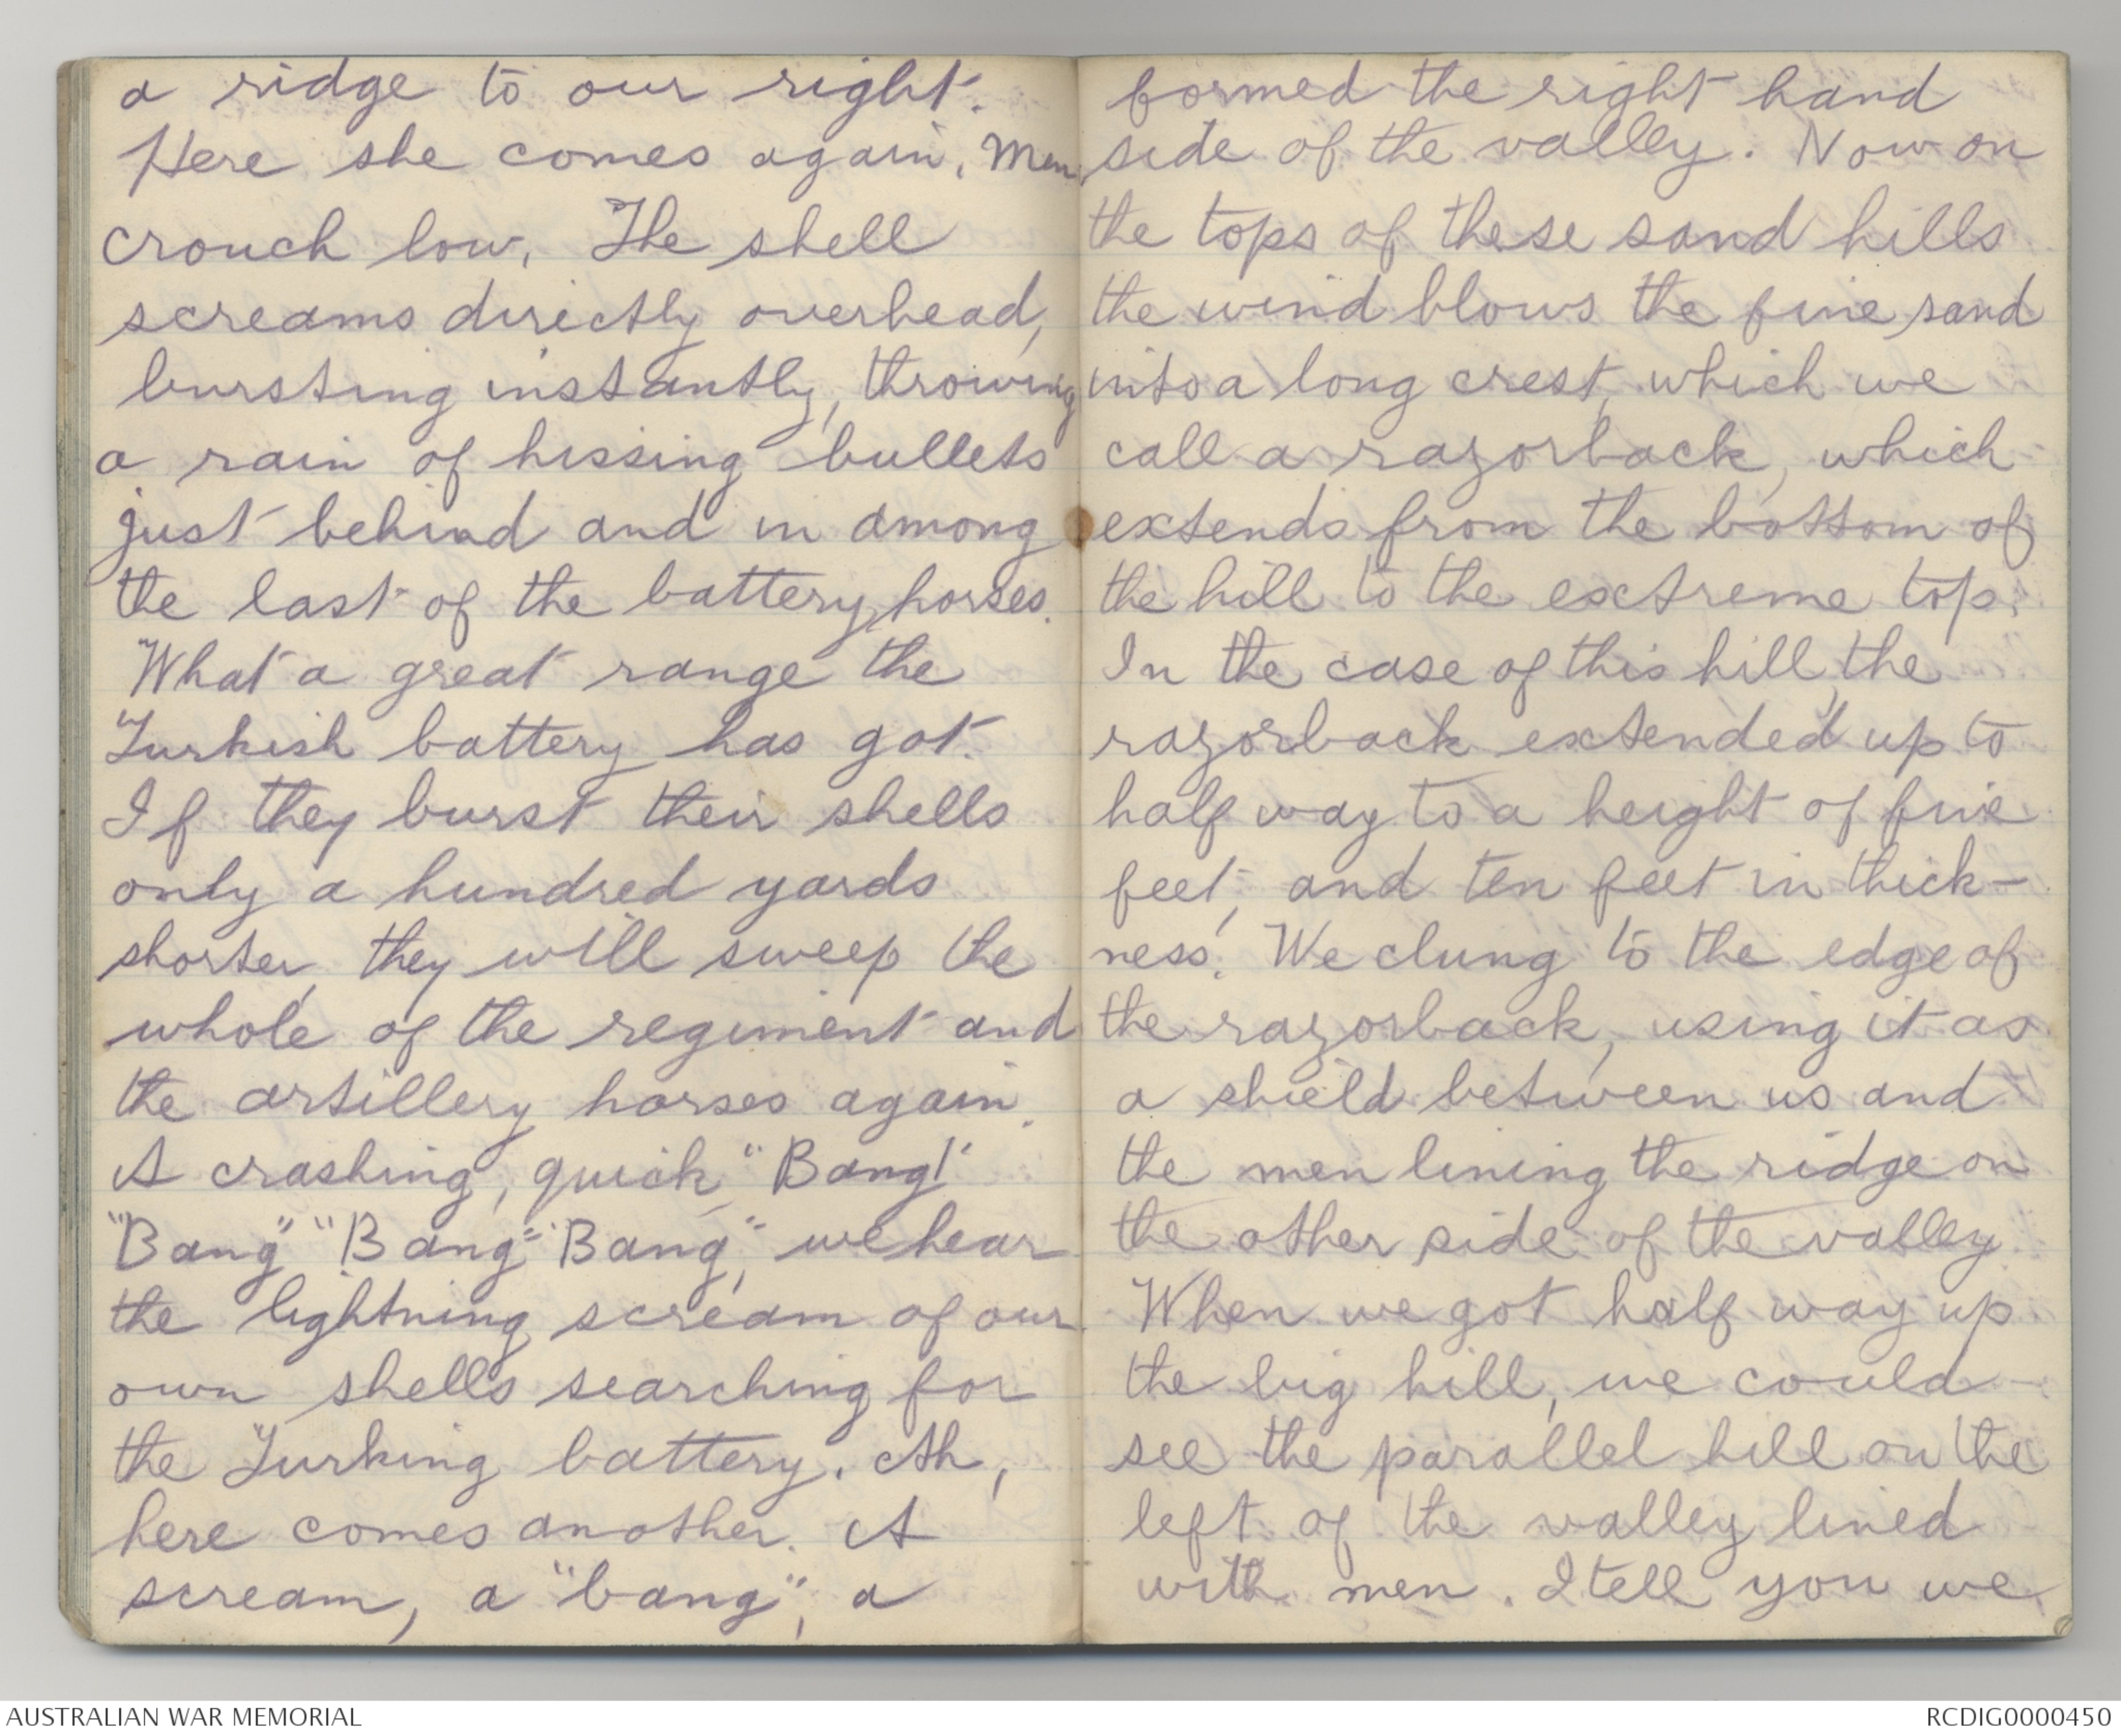 a ridge to our right.
Here she comes again. Men
crouch low. The shell
screams directly overhead,
bursting instantly, throwing
a rain of hissing bullets
just behind and in among
the last of the battery horses.
What a great range the
Turkish battery has got.
If they burst their shells
only a hundred yards
shorter, they will sweep the
whole of the regiment and
the artillery horses again.
A crashing, quick, "Bang!"
"Bang" "Bang" "Bang", we hear
the lightning scream of our
own shells searching for
the Turking battery. Ah,
here comes another. A
scream, a "bang", a
formed the right hand
side of the valley. Now on
the tops of these sand hills
the wind blows the fine sand
into a long crest, which we
call a razorback, which
extends from the bottom of
the hill to the extreme top.
In the case of this hill, the
razorback extended up to
half way to a height of five
feet, and ten feet in thick-
ness. We clung to the edge of
the razorback, using it as
a shield between us and
the men lining the ridge on
the other side of the valley.
When we got half way up
the big hill, we could
see the parallel hill on the
left of the valley lined
with men. I tell you we
AUSTRALIAN WAR MEMORIAL
RCDIG0000450